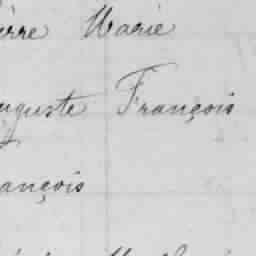 ierre Marie
uguste François
ançois